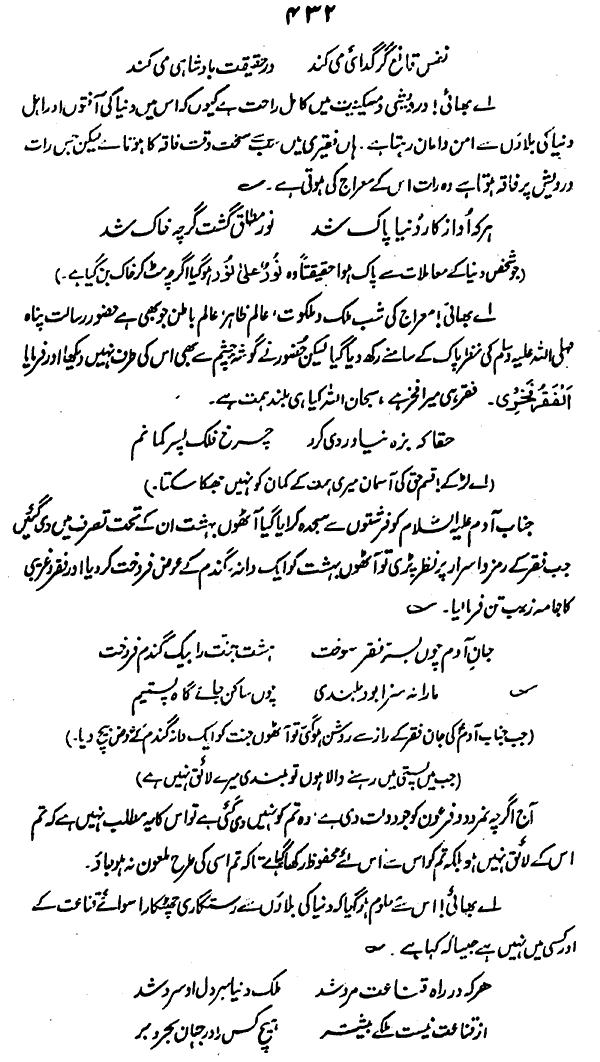 ۴۳۲
نفس قانع گر گدائی می کند درحقیقت بادشاہی می کند
اے بھائی! درویشی ومسکینیت میں کامل راحت ہے کیوں کہ اس میں دنیا کی آفتوں اور اہل
دنیا کی بلاؤں سے امن وامان رہتا ہے۔ ہاں فقیری میں سب سے سخت وقت فاقہ کا ہوتا ہے لیکن جس رات
درویش پر فاقہ ہوتا ہے وہ رات اس کے معراج کی ہوتی ہے۔ ؎
ہر کہ اُو از کار دُنیا پاک شد نور مطلق گشت گرچہ خاک شد
(جو شخص دنیا کے معاملات سے پاک ہوا حقیقتاً وہ نُورٌ عَلیٰ نُور ہوگیا اگرچہ مٹ کر خاک بن گیا ہے۔)
اے بھائی! معراج کی شب ملک وملکوت، عالم ظاہر عالم باطن جو بھی ہے حضور رسالت پناہ
صلی اللہ علیہ وسلم کی نظر پاک کے سامنے رکھ دیا گیا لیکن حضور نے گوشۂ چشم سے بھی اس کی طرف نہیں دیکھا اور فرمایا
اَلْفَقْرُ فَخْرِی۔ فقر ہی میرا فخر ہے، سبحان اللہ کیا ہی بلند ہمت ہے۔
حقا کہ بزہ نیاورد کرد چرخ فلک پسر کمانم
(اے لڑکے! قسم حق کی آسمان میری ہمت کے کمان کو نہیں جھکا سکتا۔)
جناب آدم علیہ السلام کو فرشتوں سے سجدہ کرایا گیا آٹھوں بہشت ان کے تحت تصرف میں دی گئیں
جب فقر کے رمز واسرار پر نظر پڑی تو آٹھوں بہشت کو ایک دانہ گندم کے عوض فروخت کردیا اور فقر وغریبی
کا جامہ زیب تن فرمایا۔ ؎
جانِ آدم چوں بسرّ فقر سوخت ہشت جنّت را بیک گندم فروخت
؎ مارا نہ سزا بود بلندی چوں ساکن جائے گاہ پستیم
(جب جناب آدمؑ کی جان فقر کے راز سے روشن ہوگئی تو آٹھوں جنت کو ایک دانہ گندم کے عوض بیچ دیا۔)
(جب میں پستی میں رہنے والا ہوں تو بلندی میرے لائق نہیں ہے)
آج اگرچہ نمرود وفرعون کو جو دولت دی ہے، وہ تم کو نہیں دی گئی ہے تو اس کا یہ مطلب نہیں ہے کہ تم
اس کے لائق نہیں ہو بلکہ تم کو اس سے اس لئے محفوظ رکھا گیا ہے تاکہ تم اسی کی طرح ملعون نہ ہو جاؤ۔
اے بھائی! اس سے معلوم ہوگیا کہ دنیا کی بلاؤں سے رستگاری چھٹکارا سوائے قناعت کے
اور کسی میں نہیں ہے جیسا کہ کہا ہے۔ ؎
ہر کہ در راہ قناعت مرد شد ملک دنیا بر دل او سرد شد
از قناعت نیست ملکے بیشتر ہیچ کس را در جہان بحر و بر